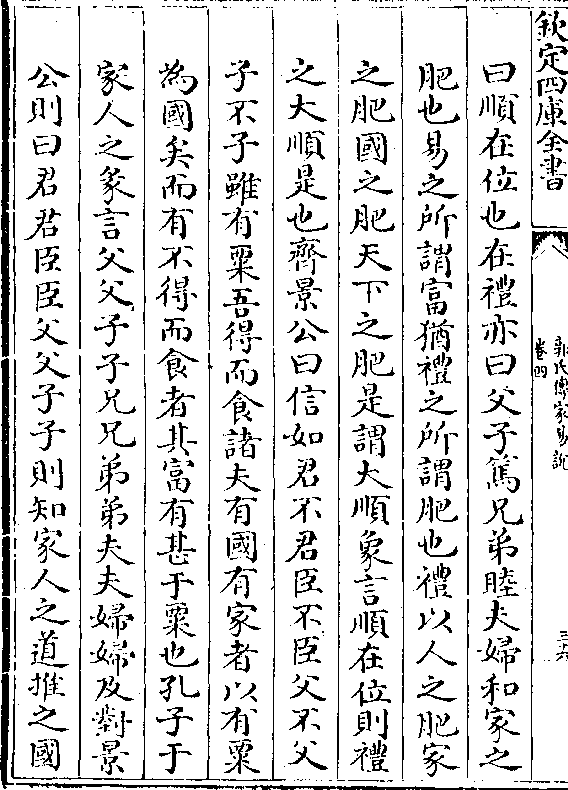 欽定四庫全書
郭氏傳家易說
卷四
三六
曰順在位也在禮亦曰父子篤兄弟睦夫婦和家之
肥也易之所謂富猶禮之所謂肥也禮以人之肥家
之肥國之肥天下之肥是謂大順象言順在位則禮
之大順是也齊景公曰信如君不君臣不臣父不父
子不子雖有粟吾得而食諸夫有國有家者以有粟
為國矣而有不得而食者其富有甚于粟也孔子于
家人之彖言父父子子兄兄弟弟夫夫婦婦及對景
公則曰君君臣臣父父子子則知家人之道推之國